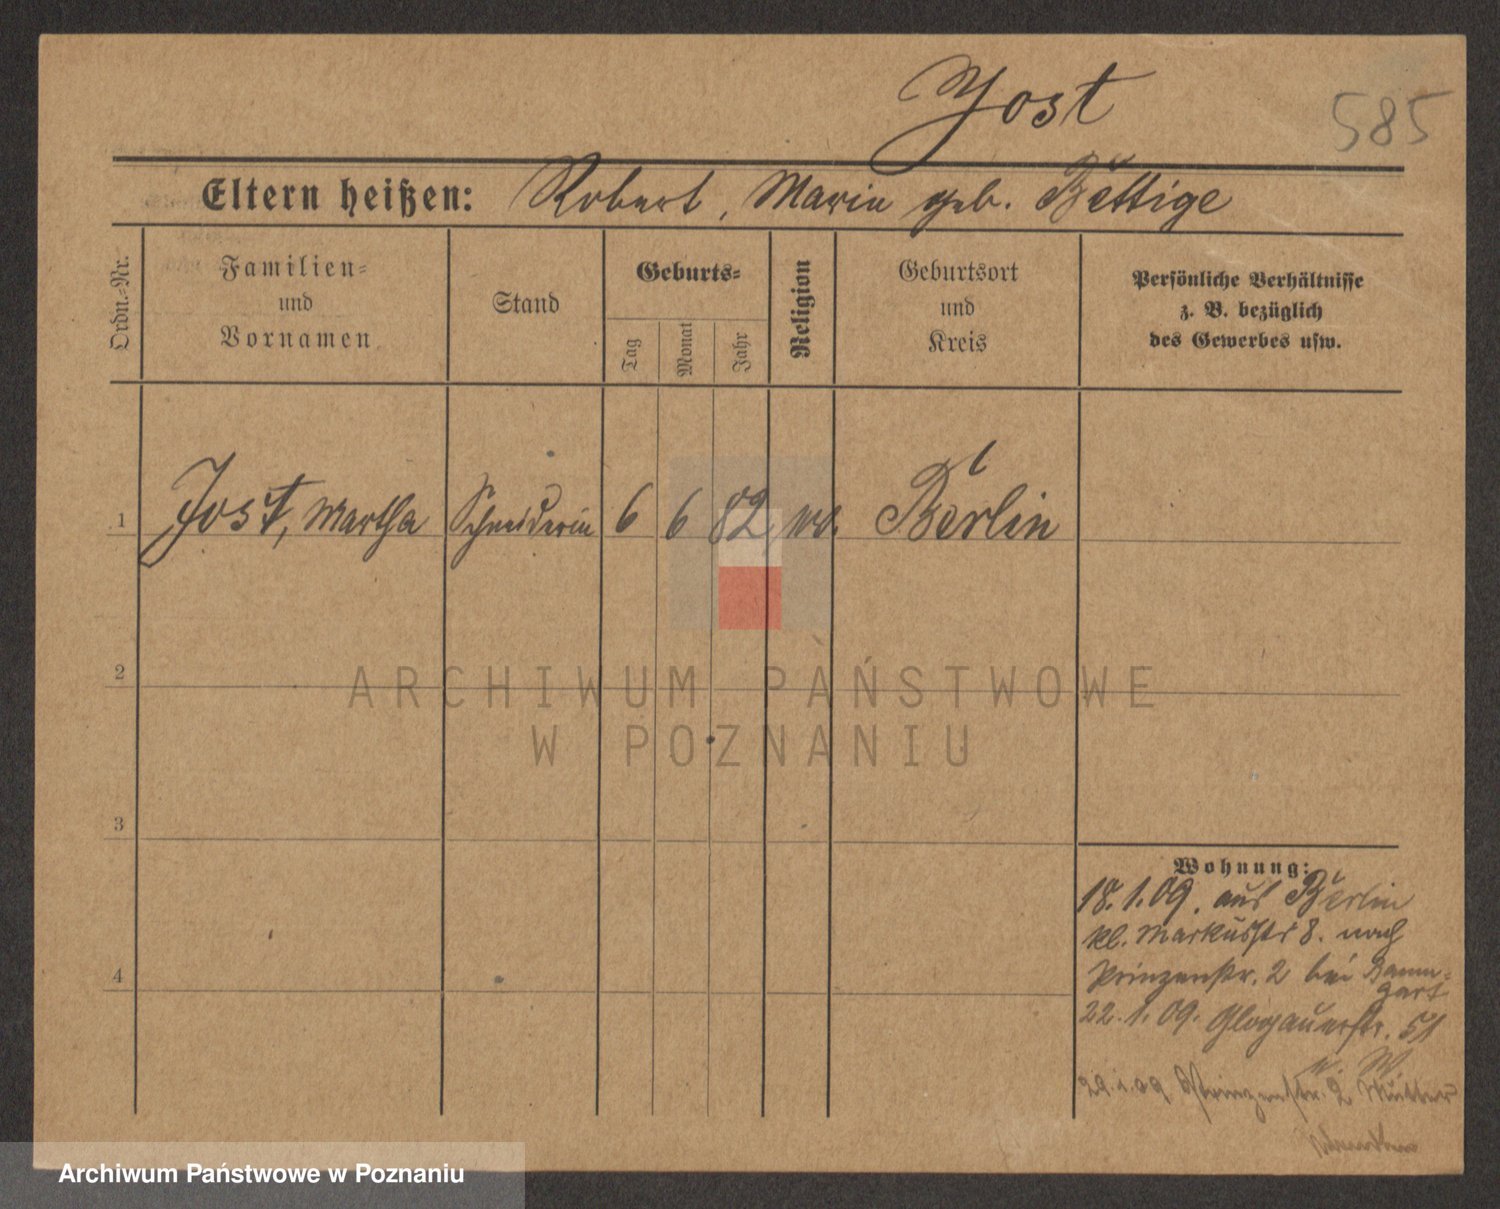 Jost
585
Eltern heißen: Robert, Marie geb. Bettige
Ordn.-Nr.
Familien- und Vornamen
Stand
Geburts-
Tag
Monat
Jahr
Religion
Geburtsort und Kreis
Persönliche Verhältnisse z. B. bezüglich des Gewerbes usw.
1 Jost, Martha Schneiderin 6 6 82 Berlin
2
ARCHIWUM PAŃSTWOWE
W POZNANIU
3
Wohnung:
18.1.09. aus Berlin
kl. Markusstr 8. nach
Prinzenstr. 2 bei Baum-
gart
4
22.1.09. Glogauerstr. 51
29.1.09 Prinzenstr. 2 Mutter
Archiwum Państwowe w Poznaniu